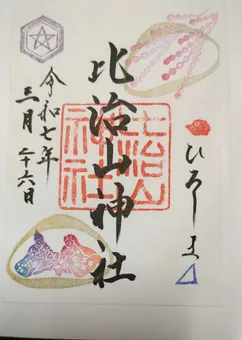 ひろしま
比治山神社
比治山
神社
令和七年
三月二十六日